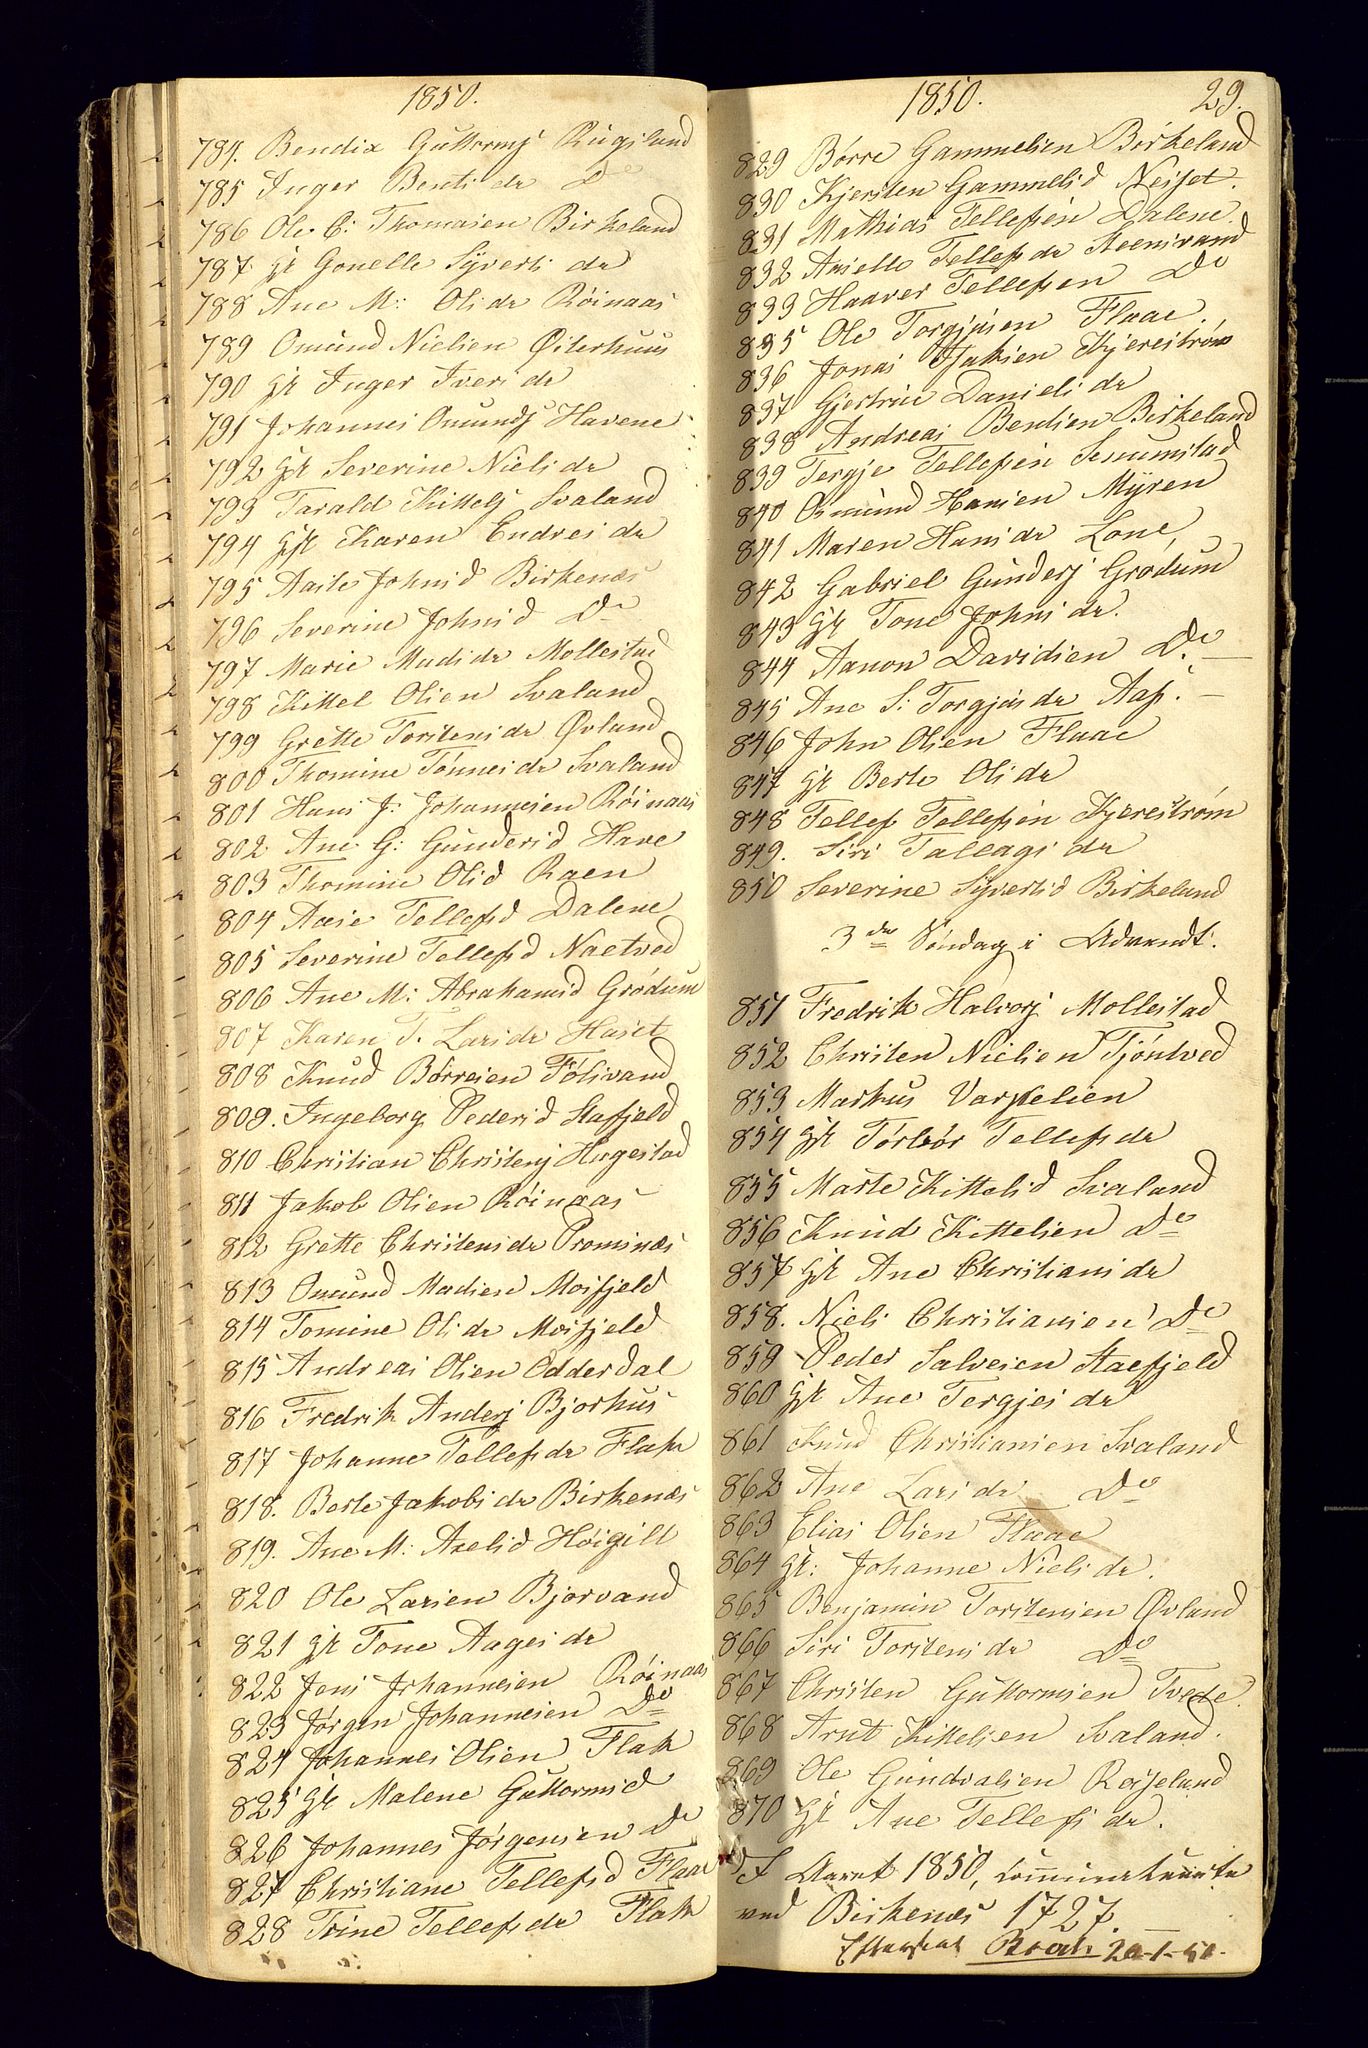 1850.
784. Bendix Guttormsj Rugsland
785 Inger Bentsdr Do
786 Ole B: Thomasen Birkeland
787 gt Gonelle Syvertsdr
788 Ane M: Olsdr Röinaas
789 Omund Nielsen Østerhuus
790 gt Inger Iversdr
791 Johannes Omundsj Havene
792 gt Severine Nielsdr
793 Tarald Kittelsj Svaland
794 gt Karen Endresdr
795 Aaste Johnsd Birkenæs
796 Severine Johnsd Do
797 Marie Madsdr Mollestad
798 Kittel Olsen Svaland
799 Grette Torstensdr Øvland
800 Thomine Tönnesdr Svaland
801 Hans J: Johannesen Röinaas
802 Ane G: Gundersd Have
803 Thomine Olsd Raen
804 Aasie Tellefsd Dalene
805 Severine Tellefsd Naetved
806 Ane M: Abrahamsd Grödum
807 Karen T. Larsdr Huset
808 Knud Börresen Fölsvand
809. Ingeborg Pedersd Stafjeld
810 Christian Christensj Hægestad
811 Jakob Olsen Röinaas
812 Grette Christensdr Prominæs
813 Omund Madsen Mosfjeld
814 Tomine Olsdr Mosfjeld
815 Andreas Olsen Odderdal
816 Fredrik Andersj Bjorhus
817 Johanne Tellefsdr Flak
818. Berte Jakobsdr Birkenæs
819. Ane M: Axelsd Höigilt
820 Ole Larsen Bjorvand
821 gt Tone Aagesdr
822 Jens Johannesen Röinaas
823 Jørgen Johannesen Do
824 Johannes Olsen Flak
825 gt Malene Guttormsd
826 Johannes Jørgensen Do
827 Christiane Tellefsd Flaae
828 Trine Tellefsdr Flak
1850. 29.
829 Børre Gammelsen Birkeland
830 Kjersten Gammelsd Neset.
831 Mathias Tellefsen Dalene.
832 Asielle Tellefsdr Reensvand
833 Haaver Tellefsen Do
835 Ole Torgjusen Flaae.
836 Jonas Isaksen Kjereström
837 Gjertrue Danielsdr
838 Andreas Bentsen Birkeland
839 Tergje Tellefsen Senumstad
840 Osmund Hansen Myren
841 Maren Hansdr Lone,
842 Gabriel Gundersj Grödum
843 gt Tone Johnsdr.
844 Aanon Davidsen Do
845 Ane S: Torgjusdr Aas.
846 John Olsen Flaae
847 gt Berte Olsdr
848 Tellef Tellefsen Kjereström
849. Siri Tallagsdr
850 Severine Syvertsd Birkeland
3die Söndag i Advendt.
851 Fredrik Halvorsj Mollestad
852 Christen Nielsen Tjöntved
853 Markus Varpelien
854 gt Törbör Tellefsdr
855 Marte Kittelsd Svaland
856 Knud Kittelsen Do
857 gt Ane Christiansdr
858. Niels Christiansen Do
859 Peder Salvesen Staefjeld
860 gt Ane Tergjesdr
861 Knud Christiansen Svaland
862 Ane Larsdr Do
863 Elias Olsen Flaae
864 gt: Johanne Nielsdr.
865 Benjamin Torstensen Øvland
866 Siri Torstensdr Do
867 Christen Guttormsen Tvede.
868 Arnt Kittelsen Svaland.
869 Ole Gundvalsen Roiseland
870 gt Ane Tellefsdr.
I Aaret 1850, communicerte
ved Birkenæs 1727.
Efterseet Brock 20-1-51.